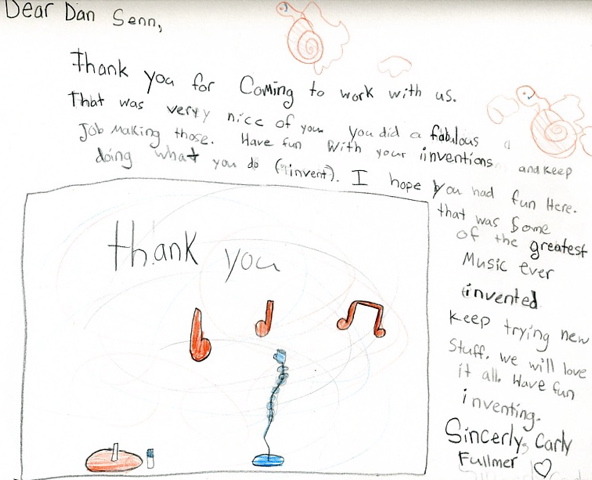 Dear Dan Senn,
Thank you for Coming to work with us.
That was veryy nice of you. you did a fabulous
Job making those. Have fun with your inventions and keep
doing what you do (invent). I hope you had fun Here.
that was some
of the greatest
Music ever
invented
keep trying new
stuff. we will love
it all. Have fun
inventing.
Sincerly, Carly
Fullmer
thank you